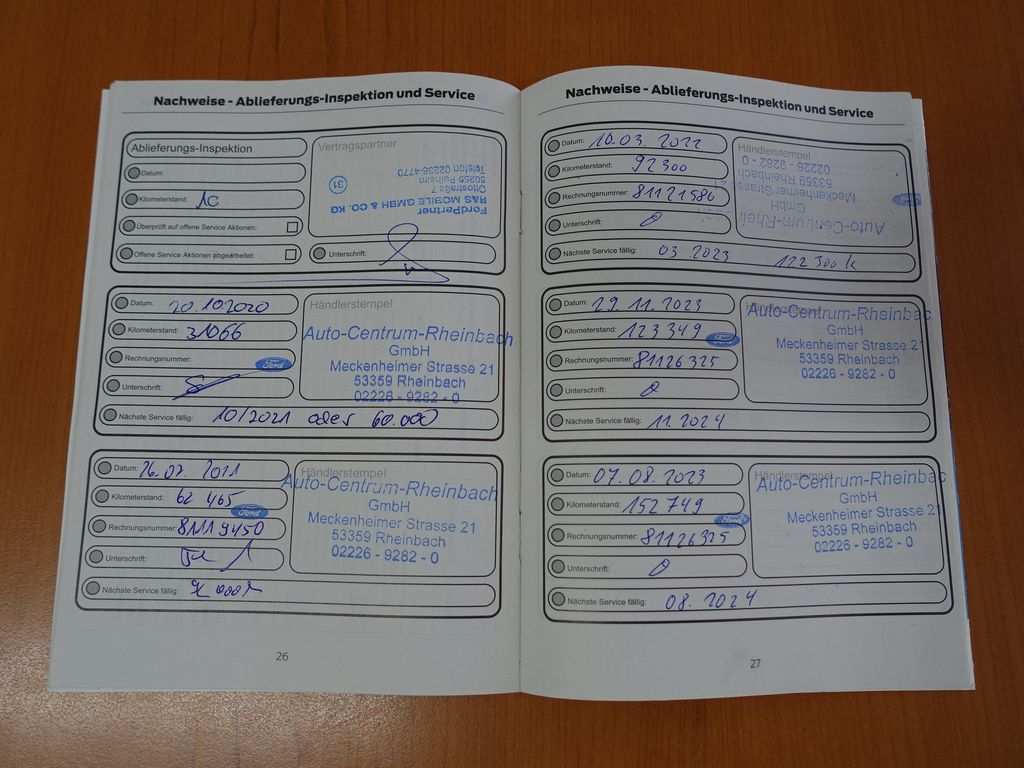 Nachweise - Ablieferungs-Inspektion und Service
Ablieferungs-Inspektion
Datum:
Kilometerstand: 10
Überprüft auf offene Service Aktionen:
Offene Service Aktionen abgearbeitet:
Vertragspartner
FordPartner
R&S MOBILE GMBH & CO. KG
Ottostraße 7
50259 Pulheim
Telefon 02238-4770
31
Unterschrift:
Datum: 20.10.2020
Kilometerstand: 31066
Rechnungsnummer:
Ford
Unterschrift:
Händlerstempel
Auto-Centrum-Rheinbach
GmbH
Meckenheimer Strasse 21
53359 Rheinbach
02226 - 9282 - 0
Nächste Service fällig: 10/2021 oder 60.000
Datum: 26.07.2021
Kilometerstand: 62 465
Ford
Rechnungsnummer: 81119450
Unterschrift:
Händlerstempel
Auto-Centrum-Rheinbach
GmbH
Meckenheimer Strasse 21
53359 Rheinbach
02226 - 9282 - 0
Nächste Service fällig:
26
Nachweise - Ablieferungs-Inspektion und Service
Datum: 10.03.2022
Kilometerstand: 92300
Rechnungsnummer: 81121586
Unterschrift:
Händlerstempel
Auto-Centrum-Rhei
GmbH
Meckenheimer Strasse 21
53359 Rheinbach
02226 - 9282 - 0
Nächste Service fällig: 03 2023 122 300 k
Datum: 29.11.2023
Kilometerstand: 123349
Ford
Rechnungsnummer: 81126325
Unterschrift:
Händlerstempel
Auto-Centrum-Rheinbac
GmbH
Meckenheimer Strasse 21
53359 Rheinbach
02226 - 9282 - 0
Nächste Service fällig: 11.2024
Datum: 07.08.2023
Kilometerstand: 152749
Rechnungsnummer: 81126325
Unterschrift:
Händlerstempel
Auto-Centrum-Rheinbac
GmbH
Meckenheimer Strasse 21
53359 Rheinbach
02226 - 9282 - 0
Nächste Service fällig: 08.2024
27